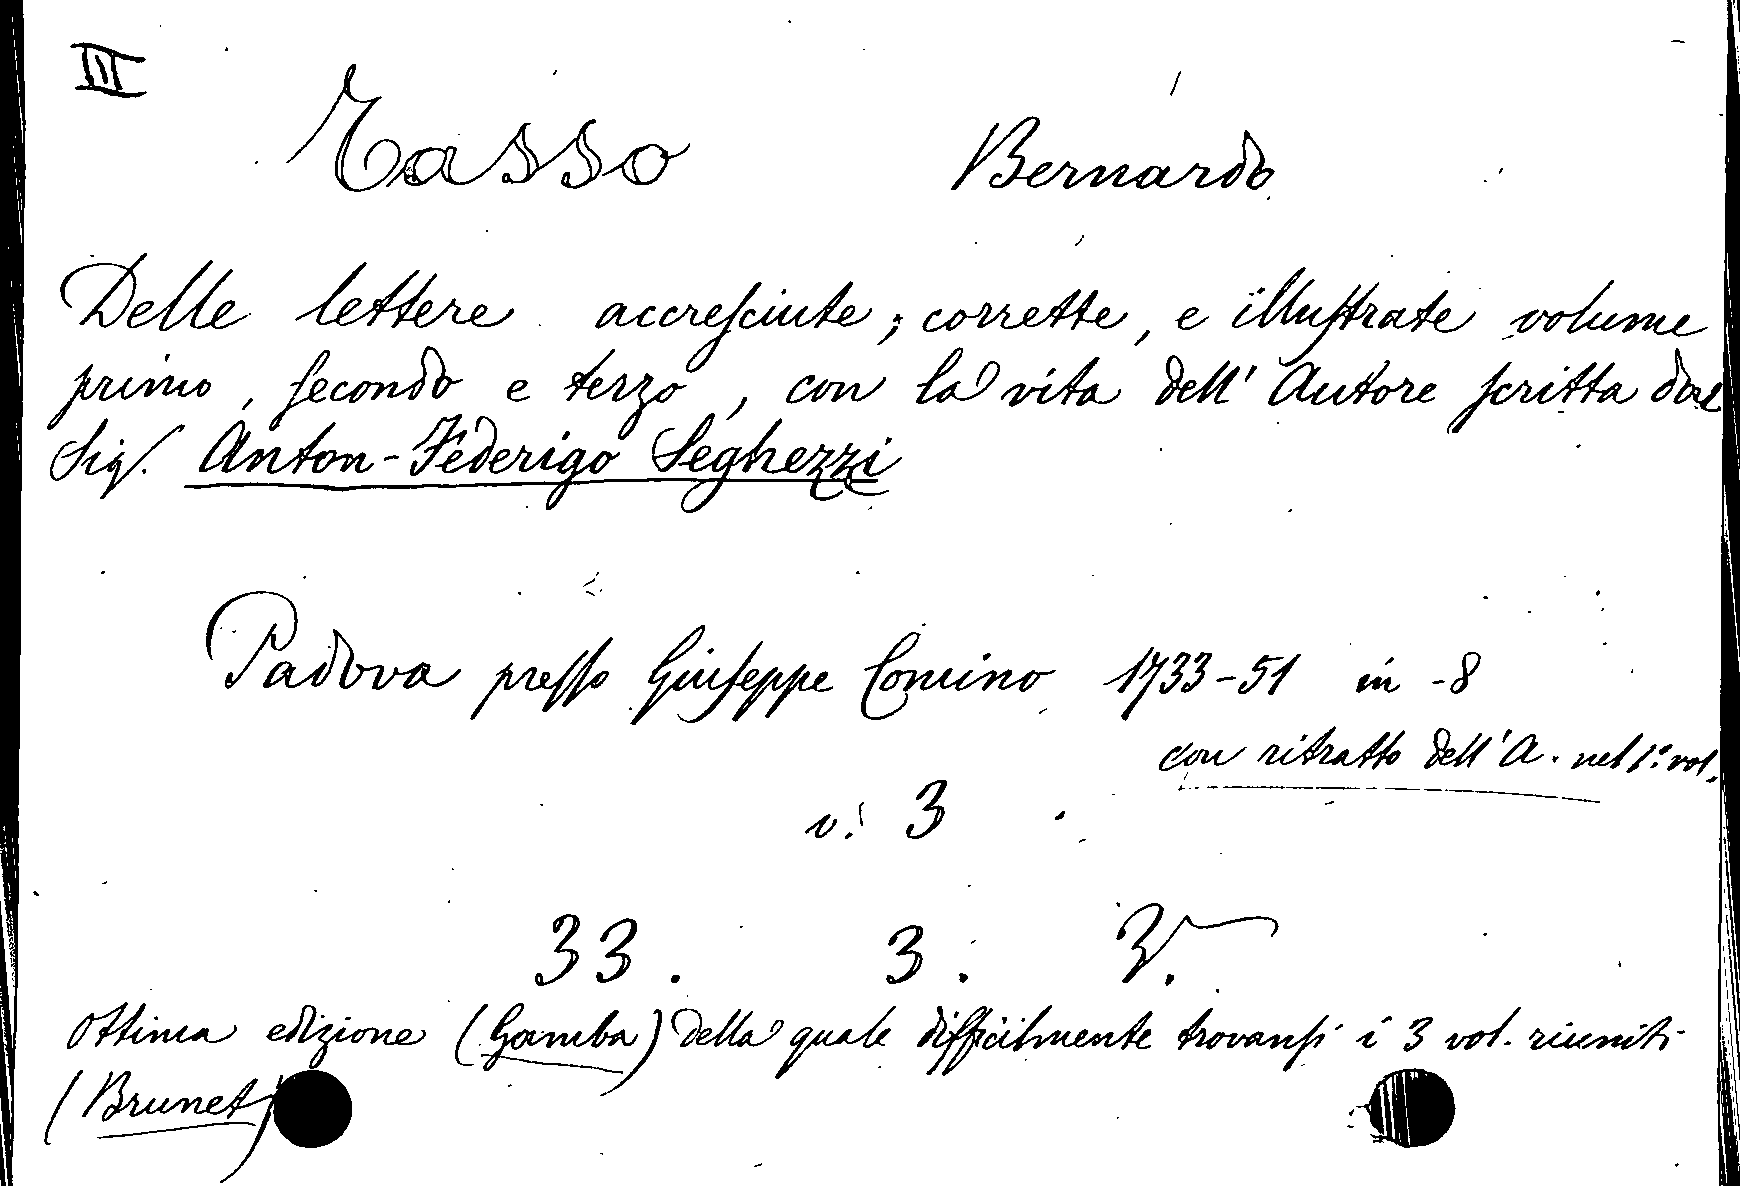 III
Tasso Bernardo
Delle lettere accresciute, corrette, e illustrate volume
primo, secondo e terzo, con la vita dell' Autore scritta dal
Sig. Anton-Federigo Seghezzi
Padova presso Giuseppe Comino 1733-51 in -8
con ritratto dell' A. nel 1.° vol.
v. 3
33. 3. 3.
Ottima edizione (Gamba) della quale difficilmente trovansi i 3 vol. riuniti
(Brunet)